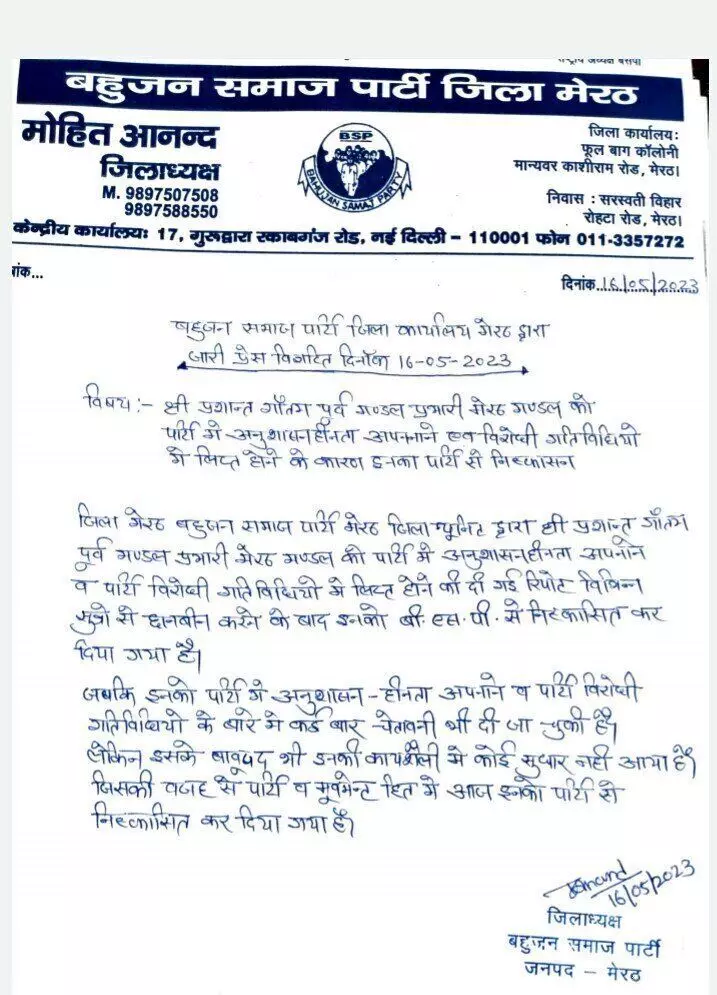 राष्ट्रीय अध्यक्ष बसपा
बहुजन समाज पार्टी जिला मेरठ
मोहित आनन्द
जिलाध्यक्ष
M. 9897507508
9897588550
BSP
BAHUJAN SAMAJ PARTY
जिला कार्यालय:
फूल बाग कॉलोनी
मान्यवर काशीराम रोड, मेरठ।
निवास : सरस्वती विहार
रोहटा रोड, मेरठ।
केन्द्रीय कार्यालय: 17, गुरूद्वारा रकाबगंज रोड, नई दिल्ली - 110001 फोन 011-3357272
ांक...
दिनांक 16/05/2023
बहुजन समाज पार्टी जिला कार्यालय मेरठ द्वारा
जारी प्रेस विज्ञप्ति दिनॉक 16-05-2023
विषय :- श्री प्रशान्त गौतम पूर्व मण्डल प्रभारी मेरठ मण्डल को
पार्टी मे अनुशासनहीनता अपनाने एव विरोधी गतिविधियो
मे लिप्त होने के कारण इनका पार्टी से निष्कासन
जिला मेरठ बहुजन समाज पार्टी मेरठ जिला यूनिट द्वारा श्री प्रशान्त गौतम
पूर्व मण्डल प्रभारी मेरठ मण्डल को पार्टी मे अनुशासनहीनता अपनाने
व पार्टी विरोधी गतिविधियो मे लिप्त होने की दी गई रिपोट विभिन्न
सुत्रो से छानबीन करने के बाद इनको बी. एस. पी. से निष्कासित कर
दिया गया है।
जबकि इनको पार्टी मे अनुशासन-हीनता अपनाने व पार्टी विरोधी
गतिविधियो के बारे मे कई बार चेतावनी भी दी जा चुकी है।
लेकिन इसके बावजूद भी इनकी कार्यशैली मे कोई सुधार नही आया है।
जिसकी वजह से पार्टी व मूवमेन्ट हित मे आज इनको पार्टी से
निष्कासित कर दिया गया है।
16/05/2023
जिलाध्यक्ष
बहुजन समाज पार्टी
जनपद - मेरठ